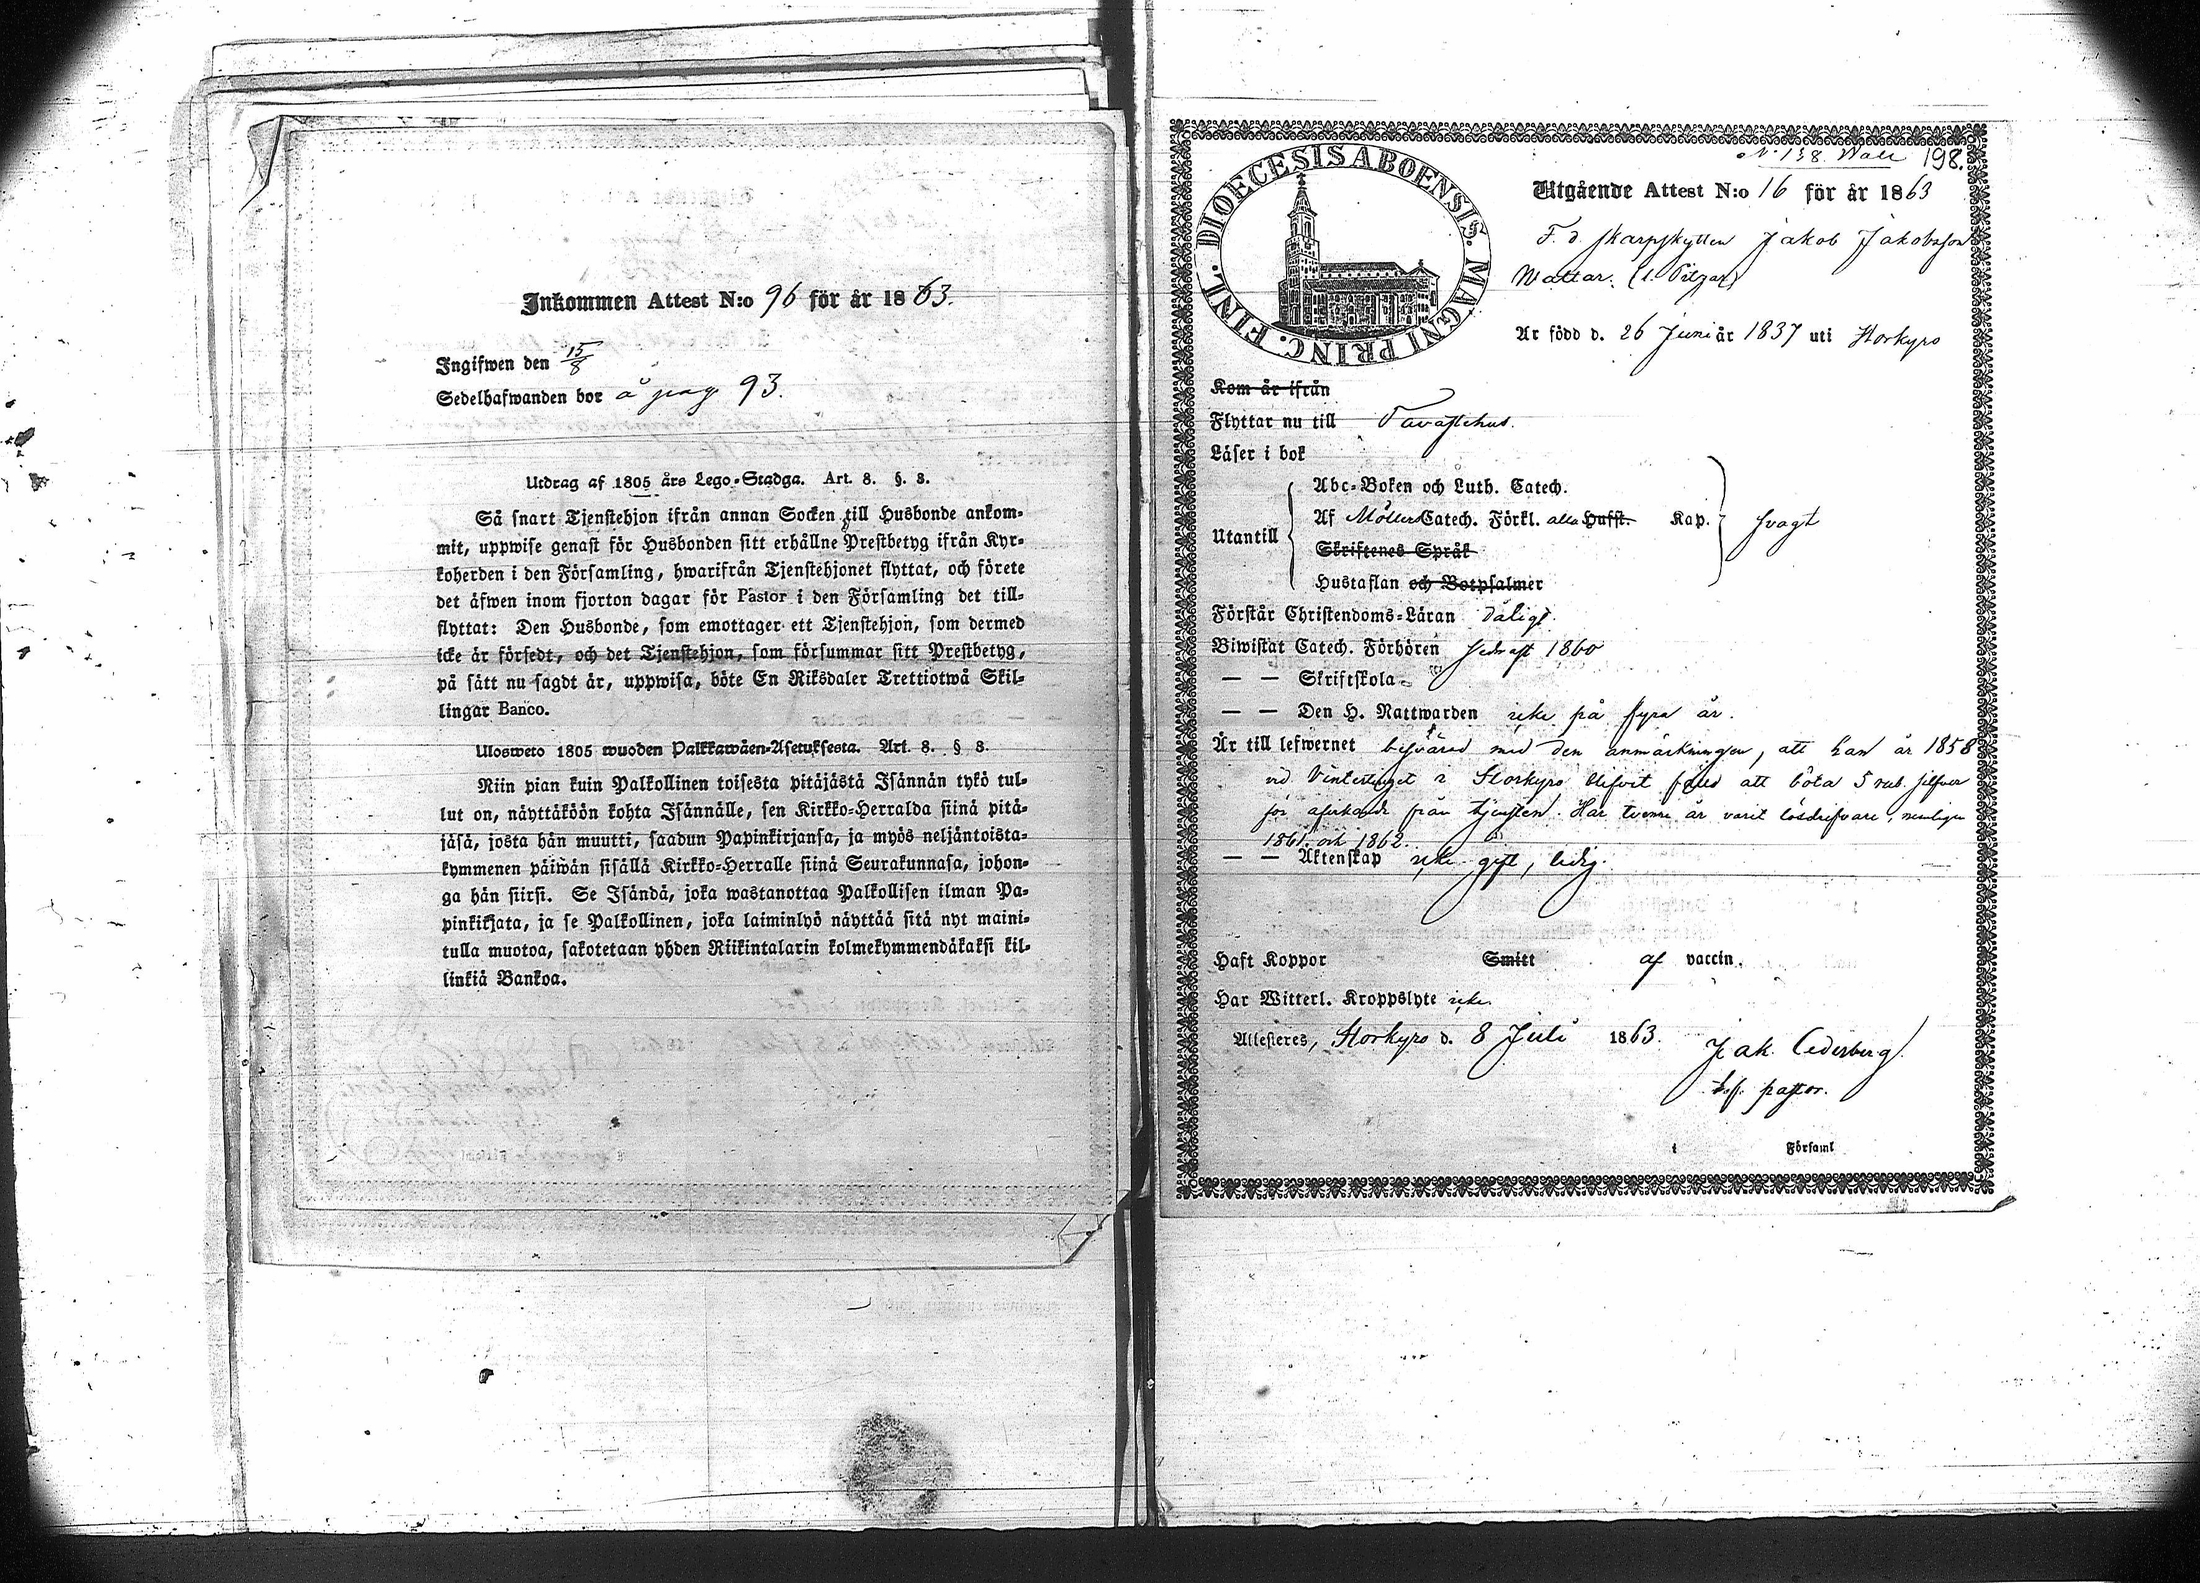 Inkommen Attest N:o 96 för år 1863.
Ingifwen den 15/8
Sedelhafwanden bor å pag 93.
Utdrag af 1805 års Lego-Stadga. Art. 8. §. 8.
Så snart Tjenstehjon ifrån annan Socken till Husbonde ankom-
mit, uppwise genast för Husbonden sitt erhållne Prestbetyg ifrån Kyr-
koherden i den Församling, hwarifrån Tjenstehjonet flyttat, och förete
det äfwen inom fjorton dagar för Pastor i den Församling det till-
flyttat: Den Husbonde, som emottager ett Tjenstehjon, som dermed
icke är försedt, och det Tjenstehjon, som försummar sitt Prestbetyg,
på sätt nu sagdt är, uppwisa, böte En Riksdaler Trettiotwå Skil-
lingar Banco.
Ulosweto 1805 wuoden Palkkawäen-Asetuksesta. Art. 8. § 8.
Niin pian kuin Palkollinen toisesta pitäjästä Isännän tykö tul-
lut on, näyttäköön kohta Isännälle, sen Kirkko-Herralda siinä pitä-
jäsä, josta hän muutti, saadun Papinkirjansa, ja myös neljäntoista-
kymmenen päiwän sisällä Kirkko-Herralle siinä Seurakunnasa, johon-
ga hän siirsi. Se Isändä, joka wastanottaa Palkollisen ilman Pa-
pinkikjata, ja se Palkollinen, joka laiminlyö näyttää sitä nyt maini-
tulla muotoa, sakotetaan yhden Riikintalarin kolmekymmendäkaksi kil-
linkiä Bankoa.
DIOECESIS ABOENSIS. MAGNI PRINC. FINL.
N:o 138 198.
Utgående Attest N:o 16 för år 1863
F. d. skarpskytten Jakob Jakobsson
Wattar.
Är född d. 26 Juni år 1837 uti Storkyro
Kom år ifrån
Flyttar nu till Tavastehus.
Läser i bok
Abc-Boken och Luth. Catech.
Utantill Af Möllers Catech. Förkl. alla Hufst. Kap. svagt
Skriftenes Språk
Hustaflan och Botpsalmer
Förstår Christendoms-Läran dåligt.
Biwistat Catech. Förhören sednast 1860
— — Skriftskola
— — Den H. Nattwarden icke på fyra år.
Är till lefwernet med den anmärkningen, att han år 1858
vid Vintertinget i Storkyro blifvit fälld att böta 5 rub. silfver
för afvikande från tjensten. Har tvenne år varit lösdrifvare, nemligen
1861 och 1862.
— — Äktenskap icke gift, ledig.
Haft Koppor Smitt af vaccin.
Har Witterl. Kroppslyte icke.
Attesteres, Storkyro d. 8 Juli 1863. Jak. Cederberg.
pastor.
i Församl